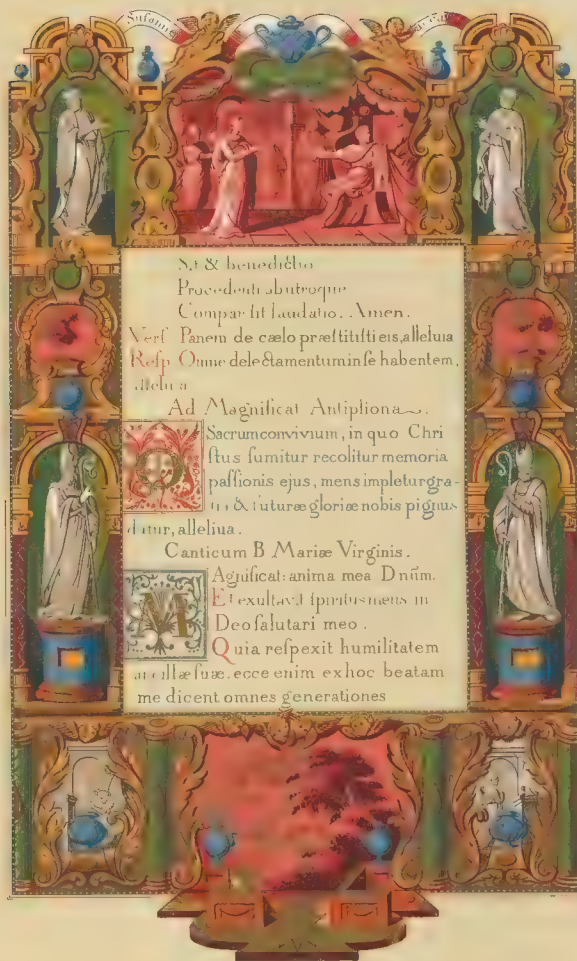 Sit & benedictio
Procedenti ab utroque
Compar sit laudatio. Amen.
Vers Panem de cælo præstitisti eis, alleluia
Resp Omne delectamentum in se habentem,
alleluia
Ad Magnificat Antiphona.
O Sacrum convivium, in quo Chri
stus sumitur recolitur memoria
passionis ejus, mens impletur gra-
tia & futuræ gloriæ nobis pignus
datur, alleliua.
Canticum B Mariæ Virginis.
MAgnificat: anima mea Dnūm.
Et exultavit spiritus meus in
Deo salutari meo.
Quia respexit humilitatem
ancillæ suæ. ecce enim ex hoc beatam
me dicent omnes generationes